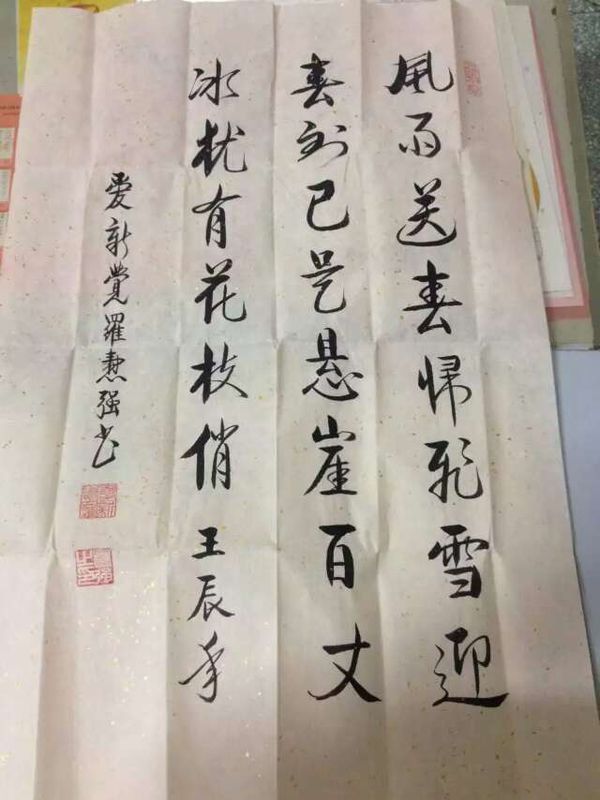 風雨送春歸飛雪迎
春到已是悬崖百丈
冰犹有花枝俏 壬辰年
爱新覺羅懃强书